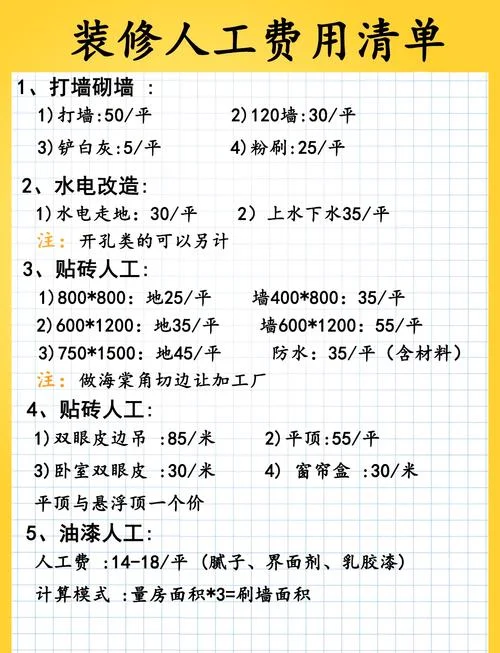 装修人工费用清单
1、打墙砌墙：
1)打墙:50/平 2)120墙:30/平
3)铲白灰:5/平 4)粉刷:25/平
2、水电改造:
1)水电走地: 30/平 2) 上水下水35/平
注: 开孔类的可以另计
3、贴砖人工:
1)800*800: 地25/平 墙400*800: 35/平
2)600*1200: 地35/平 墙600*1200: 55/平
3)750*1500: 地45/平 防水: 35/平（含材料）
注: 做海棠角切边让加工厂
4、贴砖人工:
1)双眼皮边吊 :85/米 2)平顶:55/平
3)卧室双眼皮 :30/米 4) 窗帘盒 :30/米
平顶与悬浮顶一个价
5、油漆人工:
人工费 :14-18/平 (腻子、界面剂、乳胶漆)
计算模式 :量房面积*3=刷墙面积